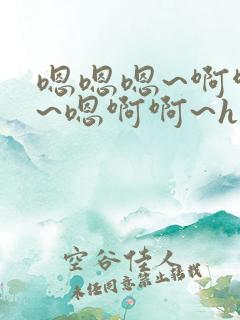 嗯嗯嗯~啊
~嗯啊啊~h
空谷佳人
未经同意禁止转载